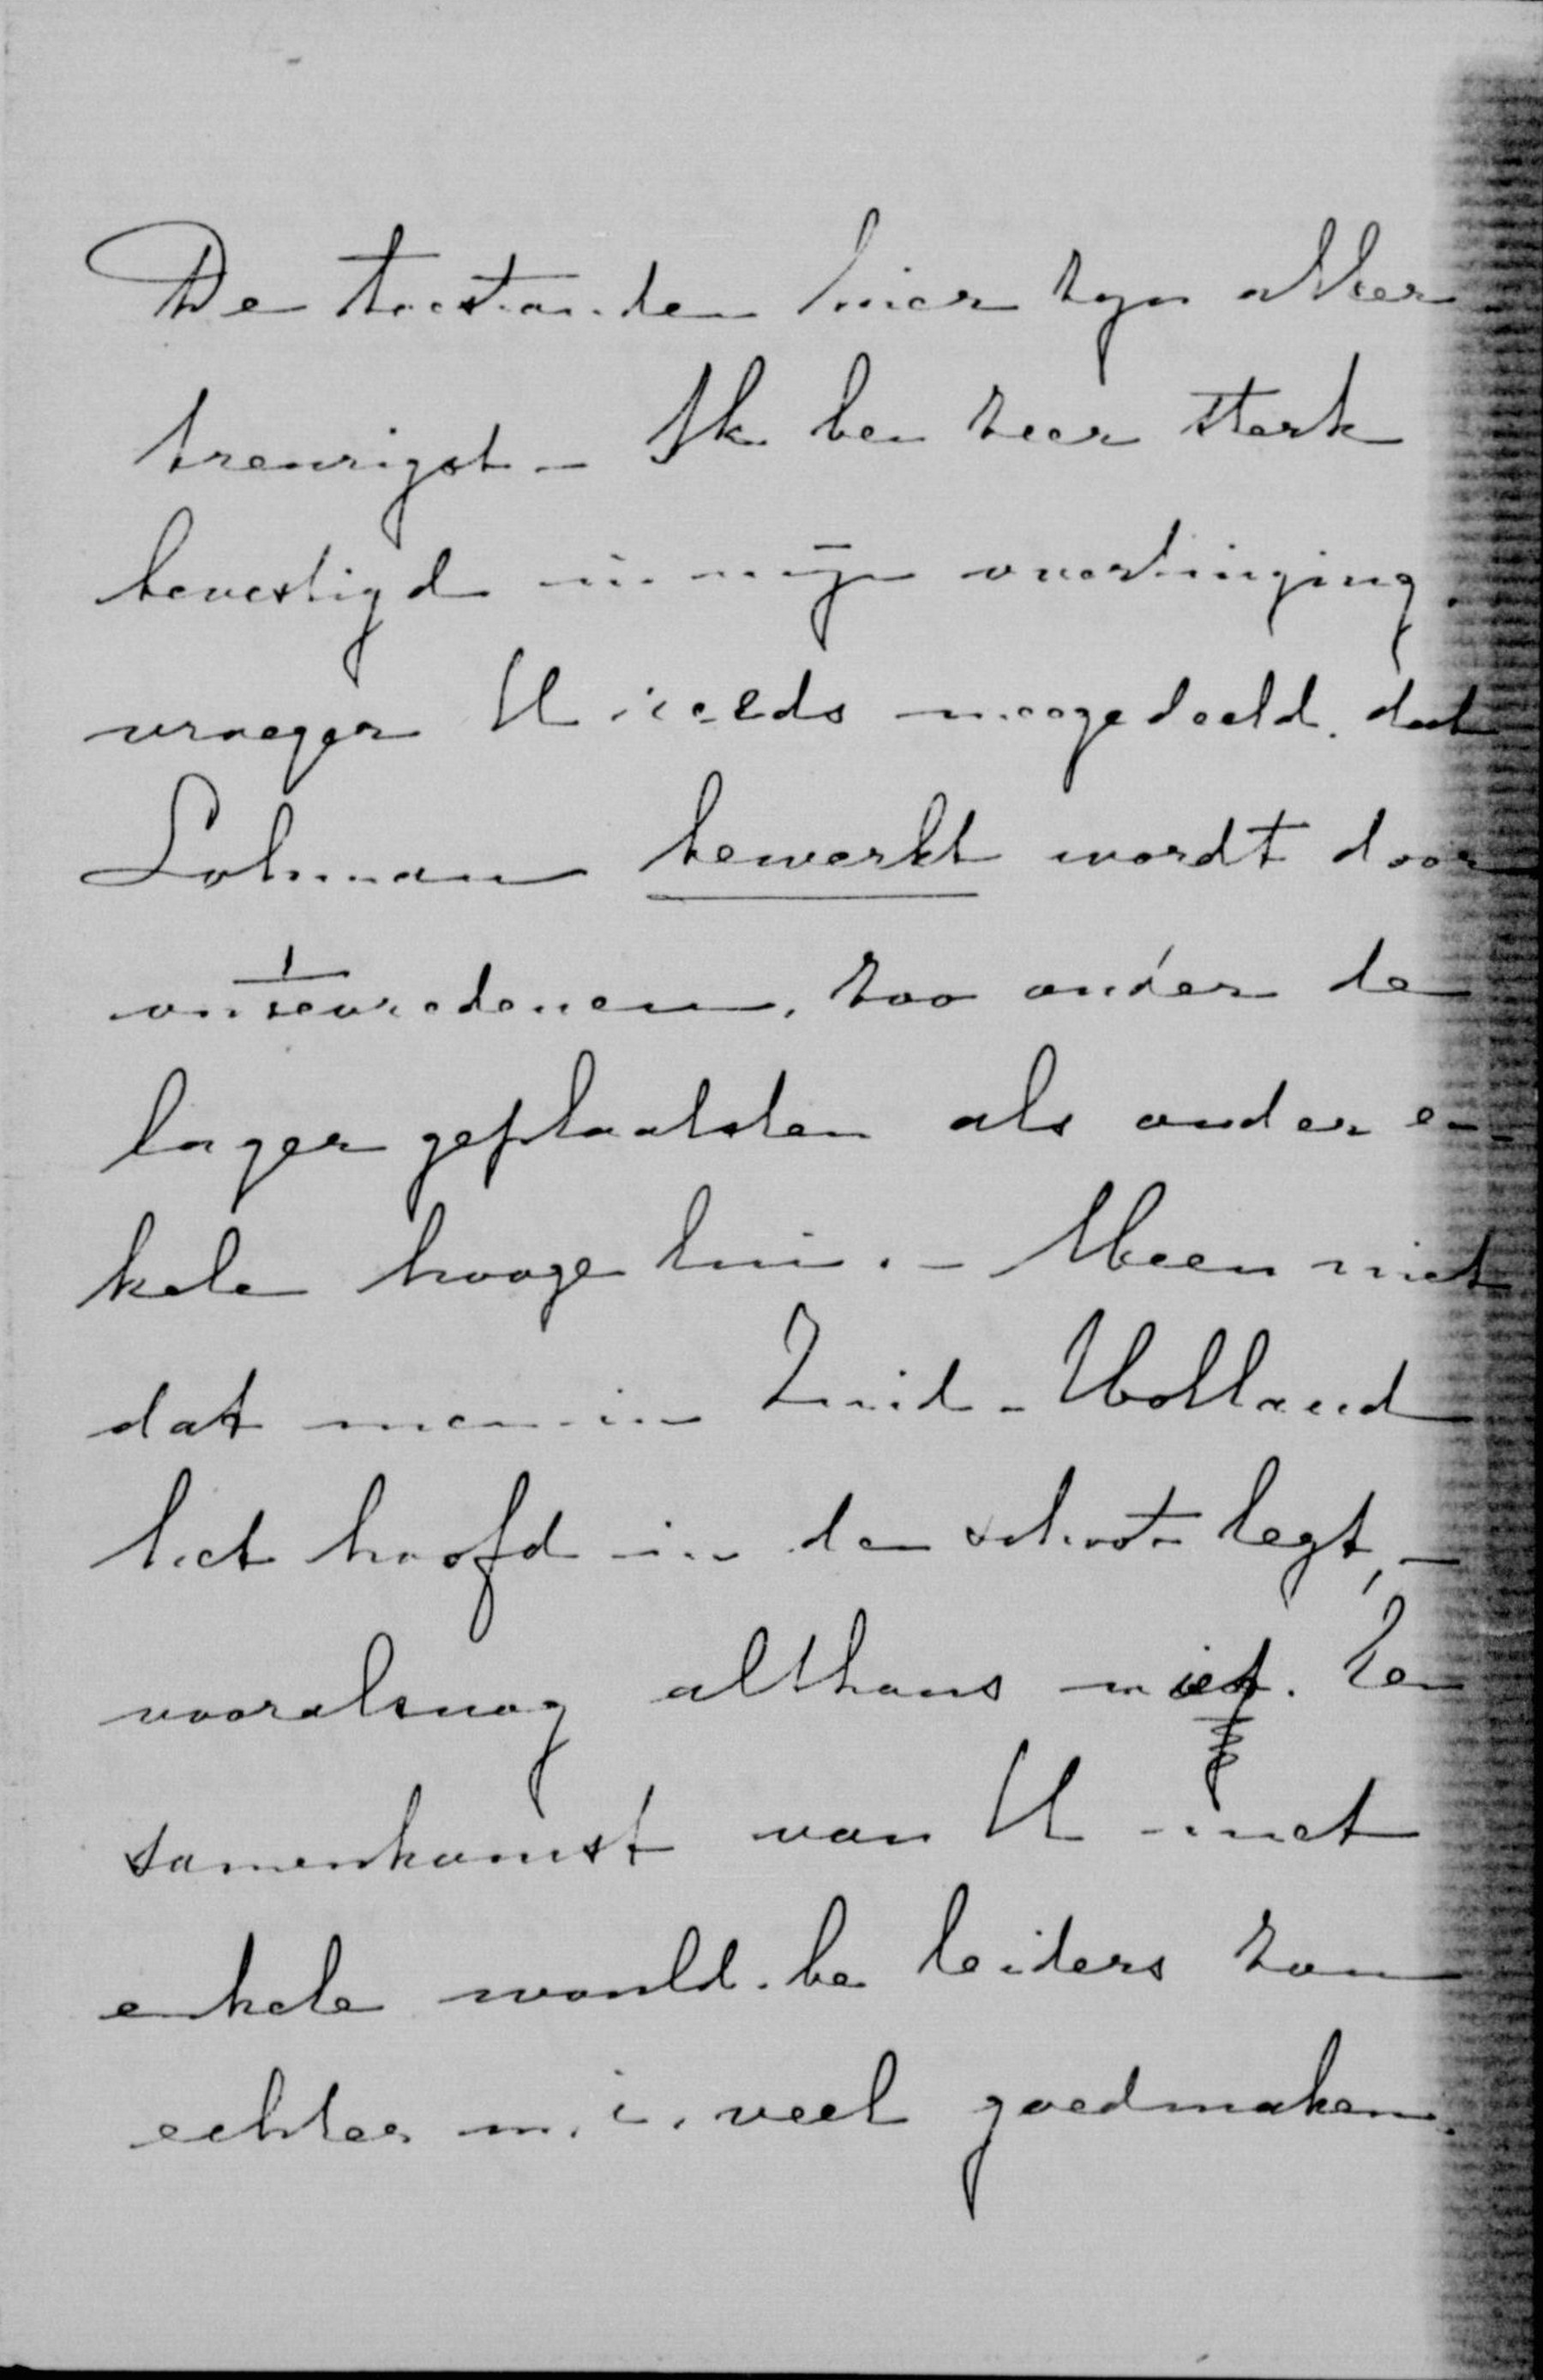 De toestanden hier zyn aller
treurigst - Ik ben zeer sterk
bevestigd in mijn overtuiging,
vroeger U reeds meegedeeld, dat
Lohman bewerkt wordt door
ontevredenen, zoo onder de
lager geplaatsten als onder en-
kele hooge lui. - Meen niet
dat men in Zuid-Holland
het hoofd in den schoot legt, -
vooralsnog althans niet. Een
samenkomst van U met
enkele would-be leiders zou
echter m. i. veel goedmaken.